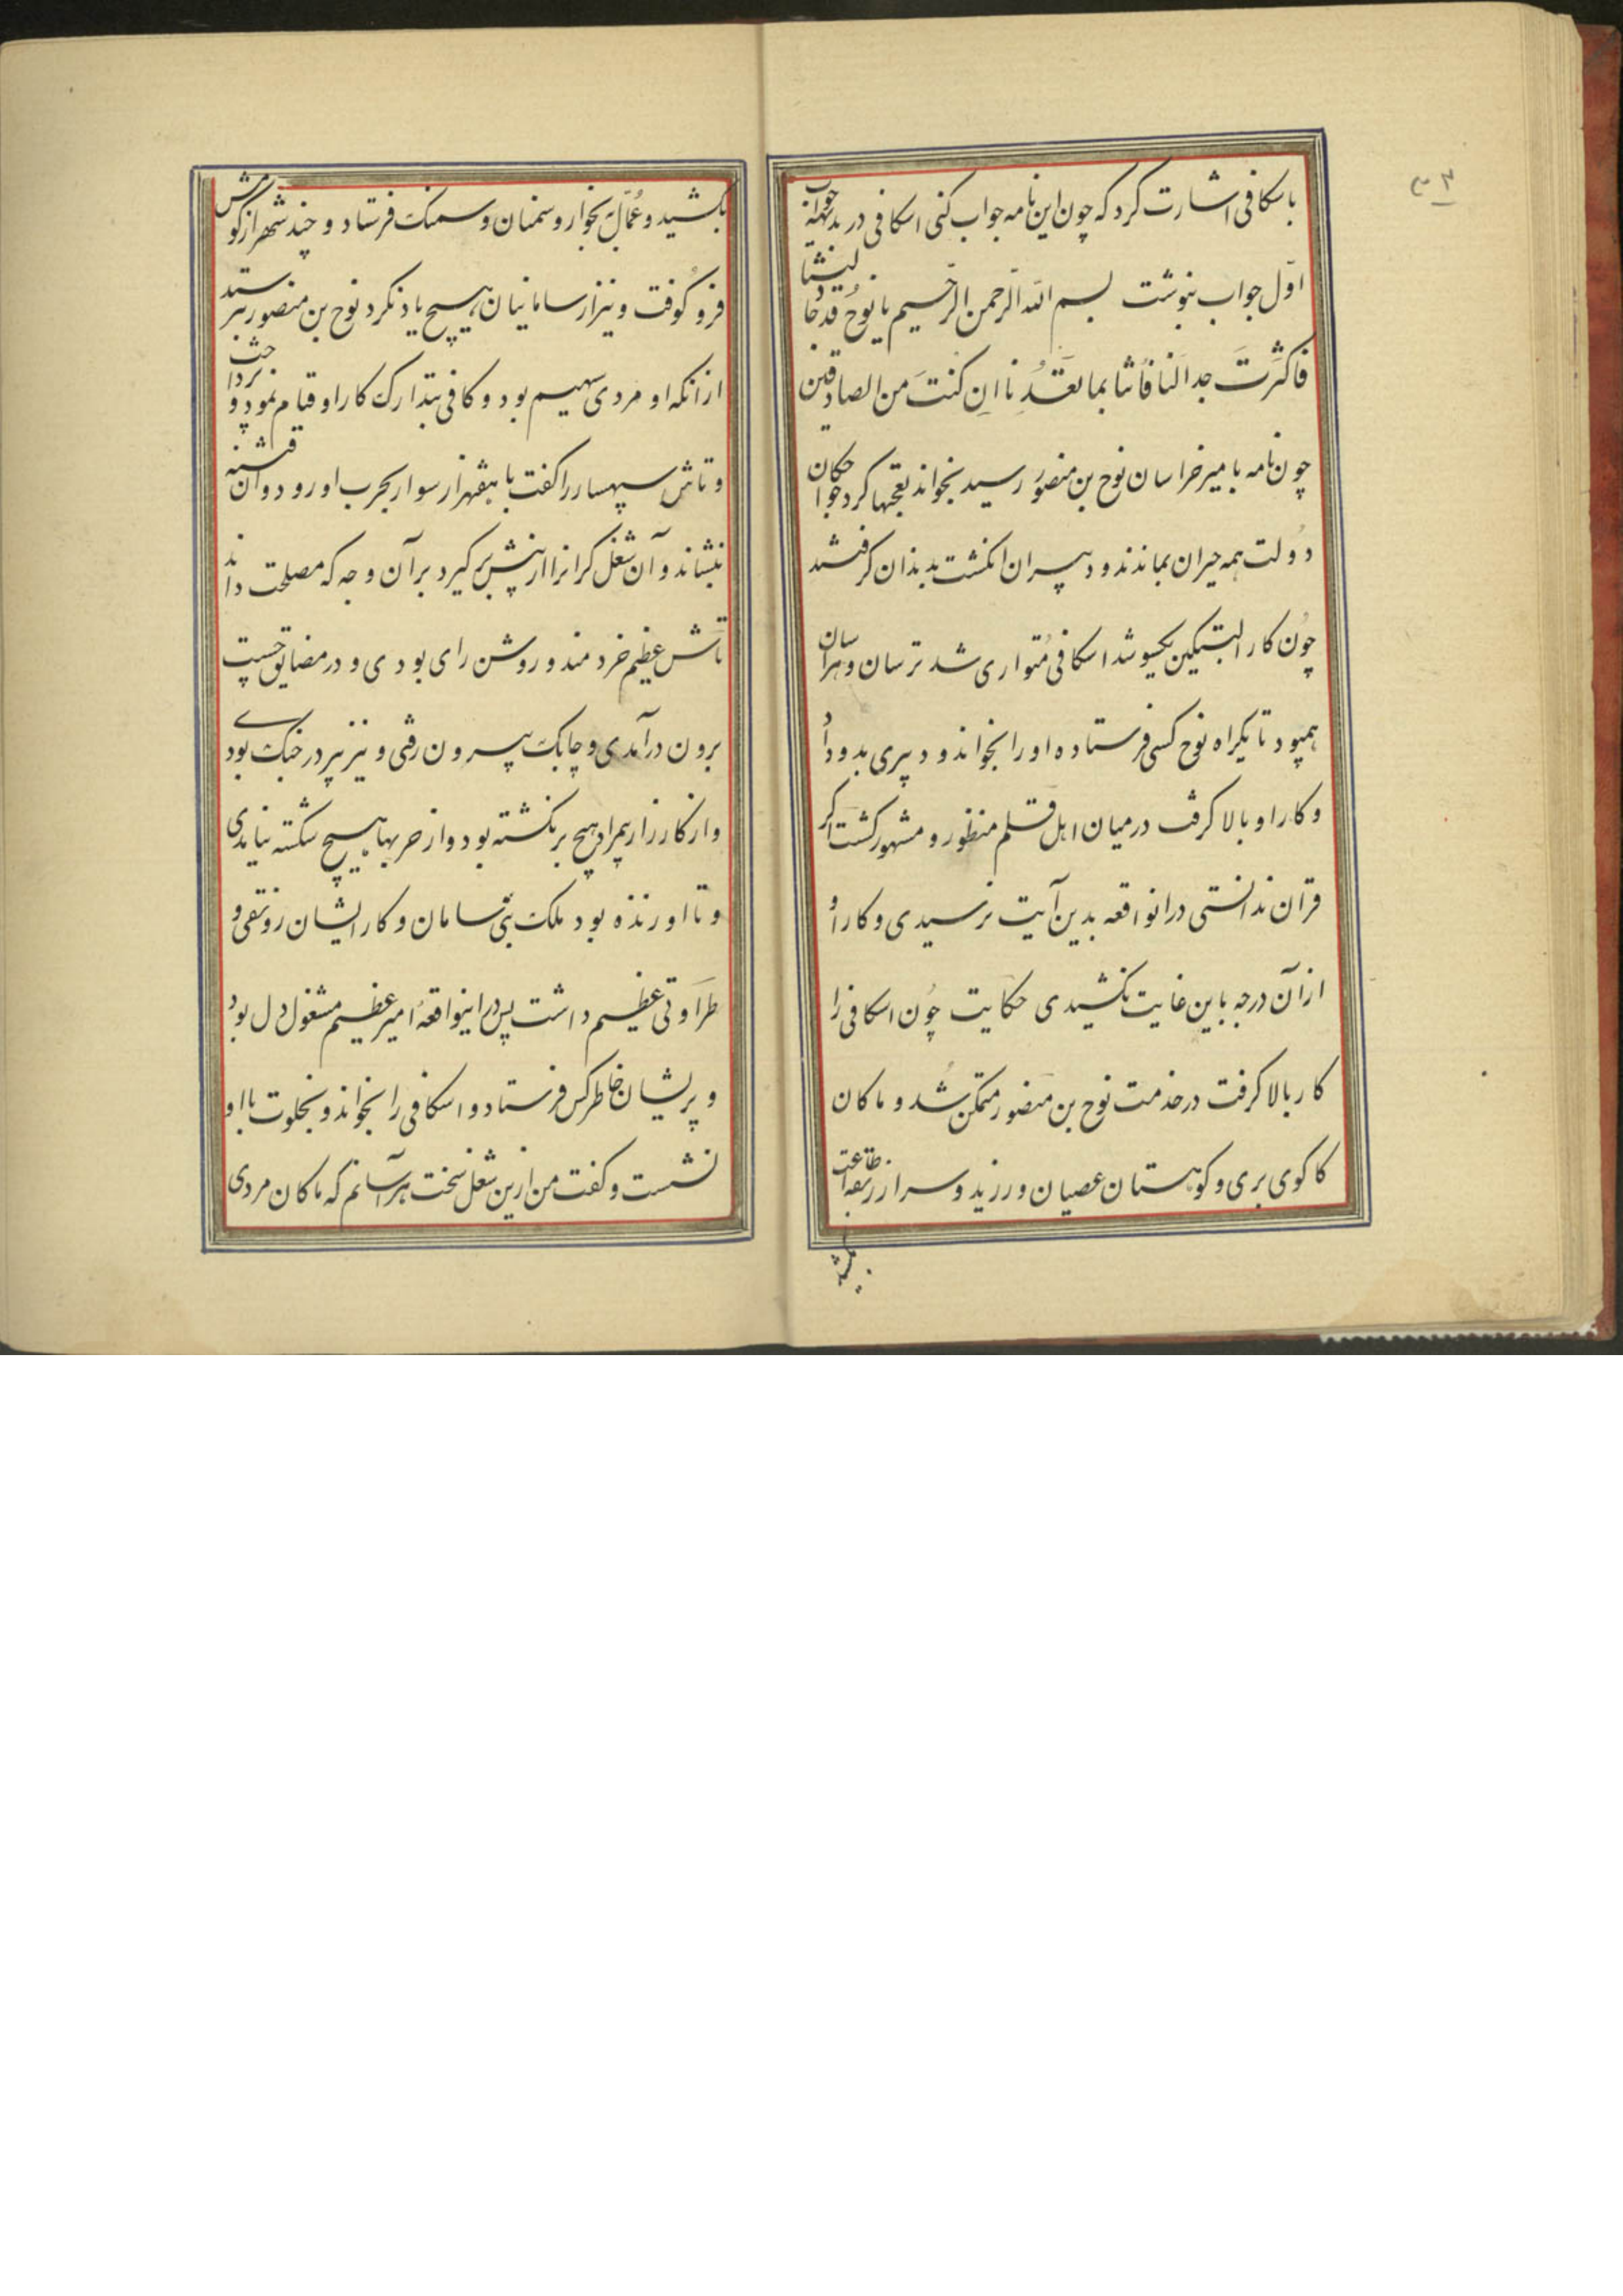 باسکافی اشارت کرد که چون این نامه جواب کنی اسکافی در بدیهه جواب
اول جواب بنوشت بسم الله الرحمن الرحیم یا نوح قد جادلتنا
فاکثرت جدالنا فأتنا بما تعدنا ان کنت من الصادقین
چون نامه بامیر خراسان نوح بن منصور رسید بخواند تعجبها کرد خواجکان
دولت همه حیران بماندند و دبیران انکشت بدندان کرفتند
چون کار البتکین یکسو شد اسکافی متواری شد ترسان و هراسان
همیبود تا یکراه نوح کسی فرستاده او را بخواند و دبیری بدو داد
و کار او بالا کرفت در میان اهل قلم منظور و مشهور کشت اکر
قرآن ندانستی در انواقعه بدین آیت نرسیدی و کار او
از آن درجه باین غایت نکشیدی حکایت چون اسکافی را
کار بالا کرفت در خدمت نوح بن منصور متمکن شد و ماکان
کاکوی بری و کوهستان عصیان ورزید و سر از ربقه اطاعت
بکشید
بکشید و عمال بخوار و سمنان و سمنک فرستاد و چند شهر از کومش
فرو کوفت و نیز از سامانیان هیچ یاد نکرد نوح بن منصور بترسید
از انکه او مردی سهیم بود و کافی بتدارک کار او قیام نمود و پرداخت
و تاش سپهسار را کفت با هفهزار سوار بحرب او رود و آن فتنه
بنشاند و آن شغل کرانرا از پیش بر کیرد بر آن وجه که مصلحت داند
تاش عظیم خردمند و روشن رای بودی و در مضایق چست
برون درآمدی و چابک بیرون رفتی و نیز پیر در جنک بودی
و از کارزار بیمراد هیچ برنکشته بود و از حربها هیچ شکسته نیامدی
و تا او زنده بود ملک بنی سامان و کار ایشان رونقی و
طراوتی عظیم داشت پس در اینواقعه امیر عظیم مشغول دل بود
و پریشان خاطر کس فرستاد و اسکافی را بخواند و بخلوت با او
نشست و کفت من ازین شغل سخت هراسانم که ماکان مردی